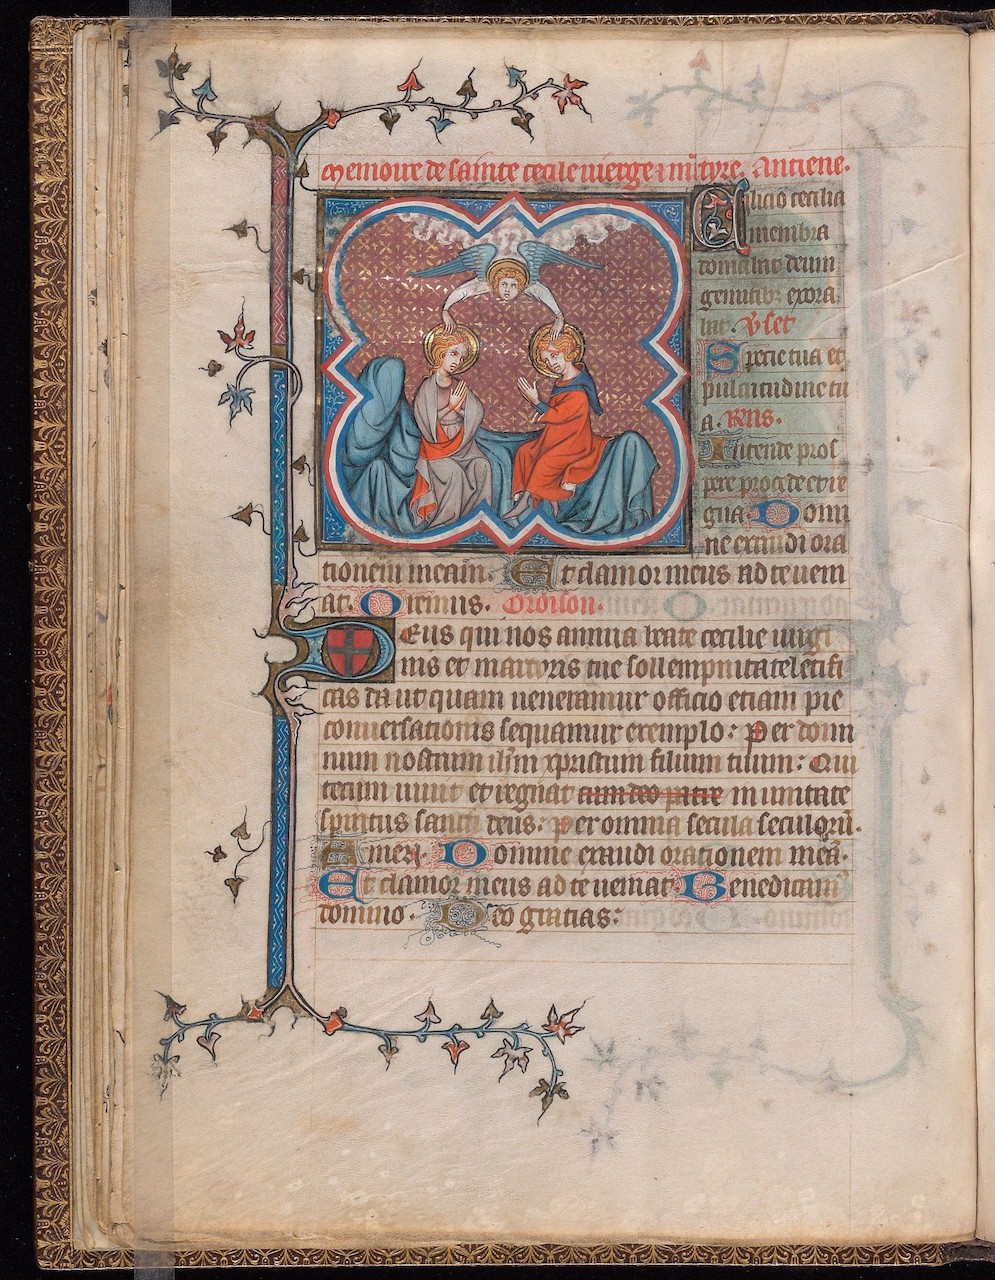 Memoire de sainte cecile vierge ⁊ mͬtyre. Antiene.
Cilicio cecilia
membra
domabat deum
gemitibꝰ exora
bat. ℣ set
Specie tua et
pulcritudine tu
a. Respͬns.
Intende pros
pere procede et re
gna. Domi
ne exaudi ora
tionem meam. Et clamor meus ad te veni
at. Oremus. Oroison.
Deus qui nos annua beate cecilie uirgi
nis et martyris tue sollempnitate letifi
cas da ut quam ueneramur officio etiam pie
conuersationis sequamur exemplo: Per domi
num nostrum ihͫm xpristum filium tuum: Qui
tecum uiuit et regnat cum deo patre in unitate
spiritus sancti deus: per omnia secula seculoꝝ̄.
Amen. Domine exaudi orationem meā.
Et clamor meus ad te ueniat. Benedicamꝰ
domino. Deo gratias: